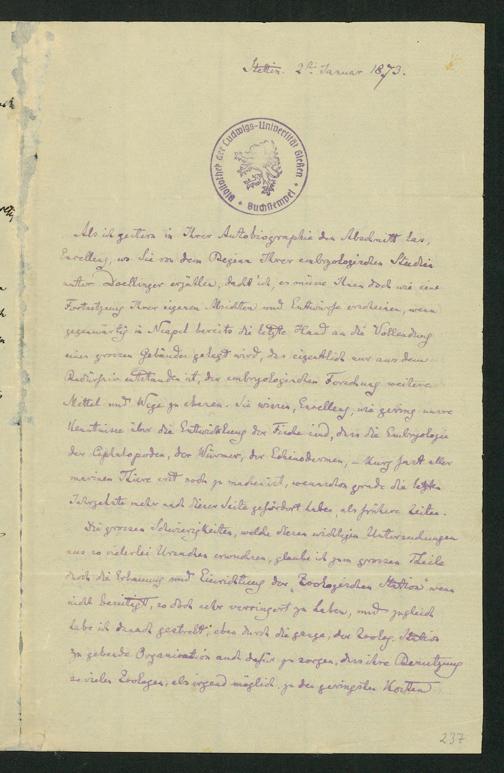 Stettin. 2ten Januar 1873.
Bibliothek der Ludwigs-Universität Gießen
Buchstempel
Als ich gestern in Ihrer Autobiographie den Abschnitt las,
Excellenz, wo Sie von dem Beginn Ihrer embryologischen Studien
unter Doellinger erzählen, dacht' ich, es müsse Ihnen doch wie eine
Fortsetzung Ihrer eigenen Absichten und Entwürfe erscheinen, wenn
gegenwärtig in Neapel bereits die letzte Hand an die Vollendung
eines grossen Gebäudes gelegt wird, das eigentlich nur aus dem
Bedürfniss entstanden ist, der embryologischen Forschung weitere
Mittel und Wege zu ebenen. Sie wissen, Excellenz, wie gering unsre
Kenntnisse über die Entwicklung der Fische sind, dass die Embryologie
der Cephalopoden, der Würmer, der Echinodermen, – kurz fast aller
marinen Thiere erst noch zu machen ist, wenn schon grade die letzten
Jahrzehnte mehr nach dieser Seite gefördert haben, als frühere Zeiten.
Die grossen Schwierigkeiten, welche diesen wichtigen Untersuchungen
aus so vielerlei Ursachen erwuchsen, glaube ich zum grossen Theile
durch die Erbauung und Einrichtung der „Zoologischen Station" wenn
nicht beseitigt, so doch sehr verringert zu haben, und zugleich
habe ich danach gestrebt, eben durch die ganze, der Zoolog. Station
zu gebende Organisation auch dafür zu sorgen, dass ihre Benutzung
so vielen Zoologen, als irgend möglich, zu den geringsten Kosten
237